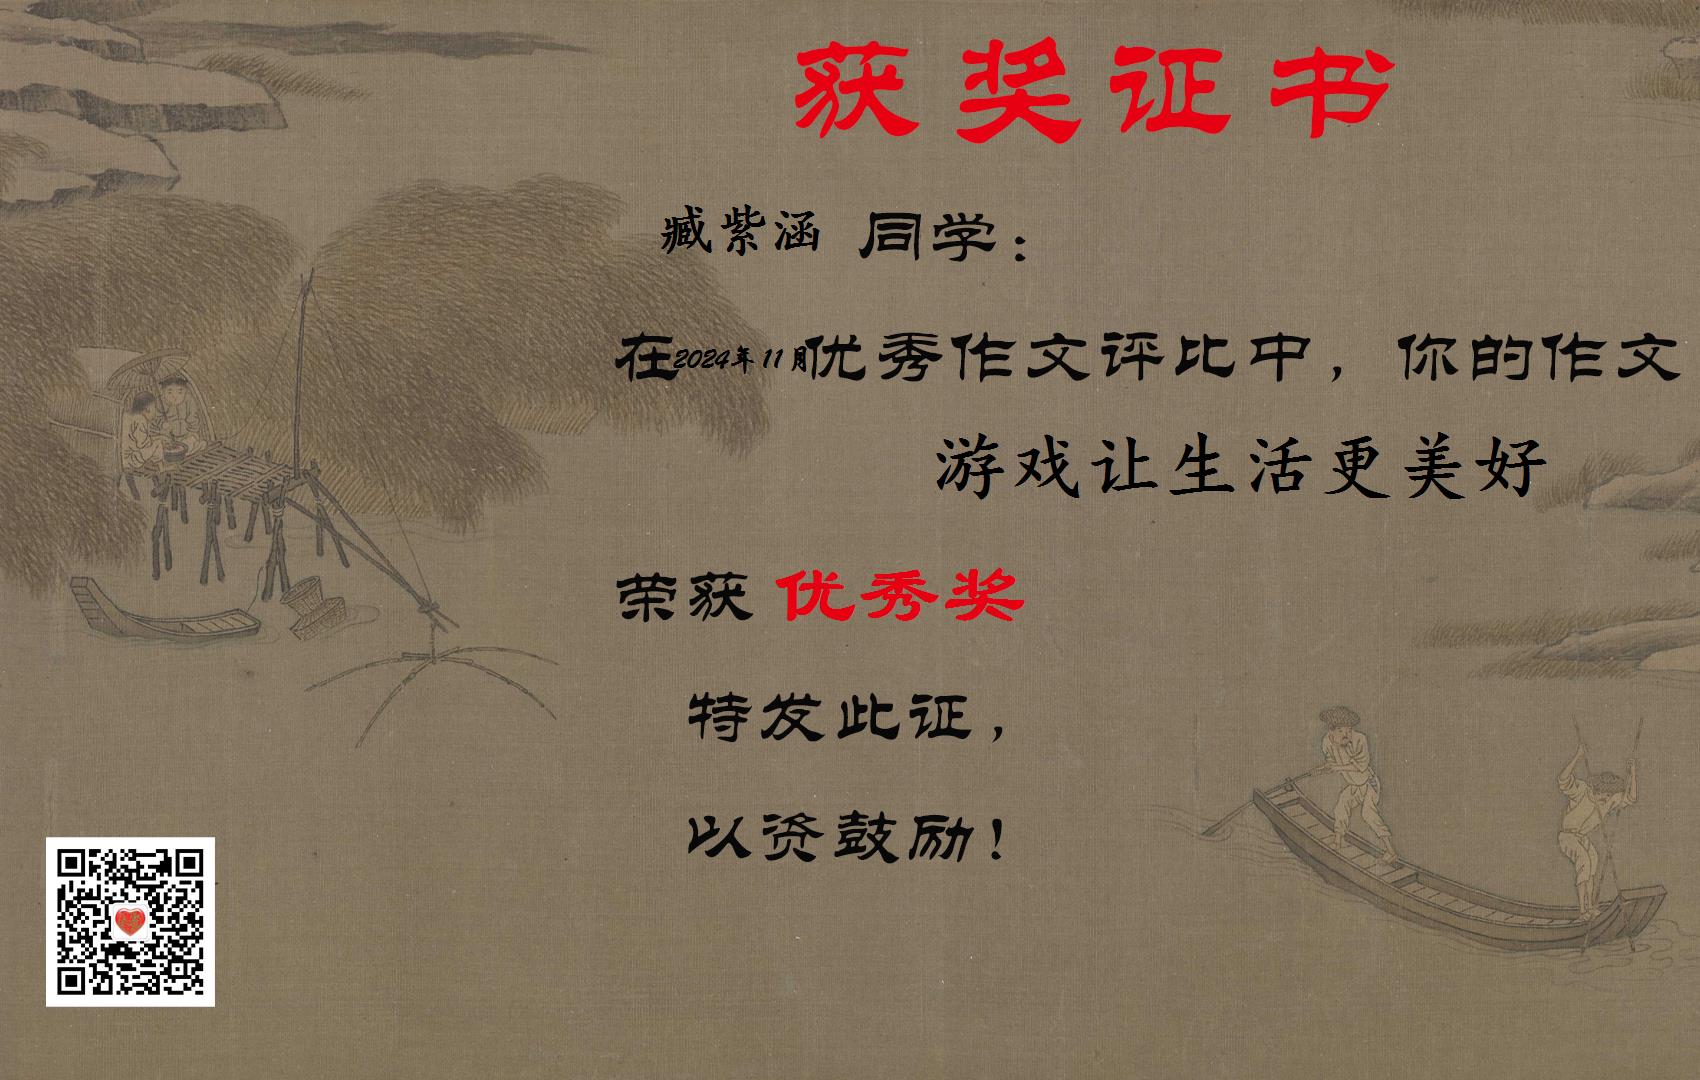 获奖证书
臧紫涵 同学：
在2024年11月优秀作文评比中，你的作文
游戏让生活更美好
荣获 优秀奖
特发此证，
以资鼓励！